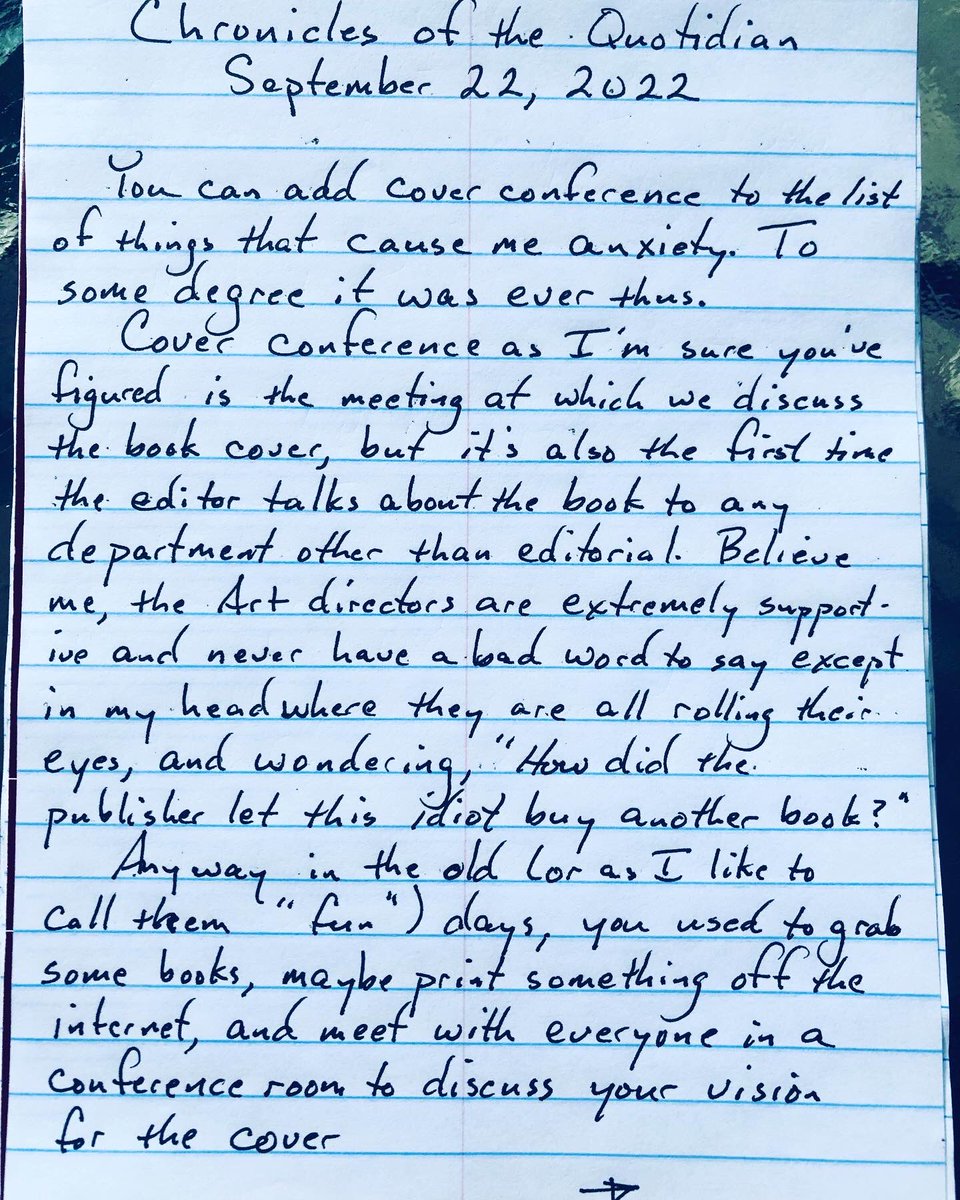 Chronicles of the Quotidian
September 22, 2022
You can add cover conference to the list
of things that cause me anxiety. To
some degree it was ever thus.
Cover conference as I'm sure you've
figured is the meeting at which we discuss
the book cover, but it's also the first time
the editor talks about the book to any
department other than editorial. Believe
me, the Art directors are extremely support-
ive and never have a bad word to say except
in my head where they are all rolling their
eyes, and wondering, "How did the
publisher let this idiot buy another book?"
Anyway in the old (or as I like to
call them "fun") days, you used to grab
some books, maybe print something off the
internet, and meet with everyone in a
conference room to discuss your vision
for the cover
→